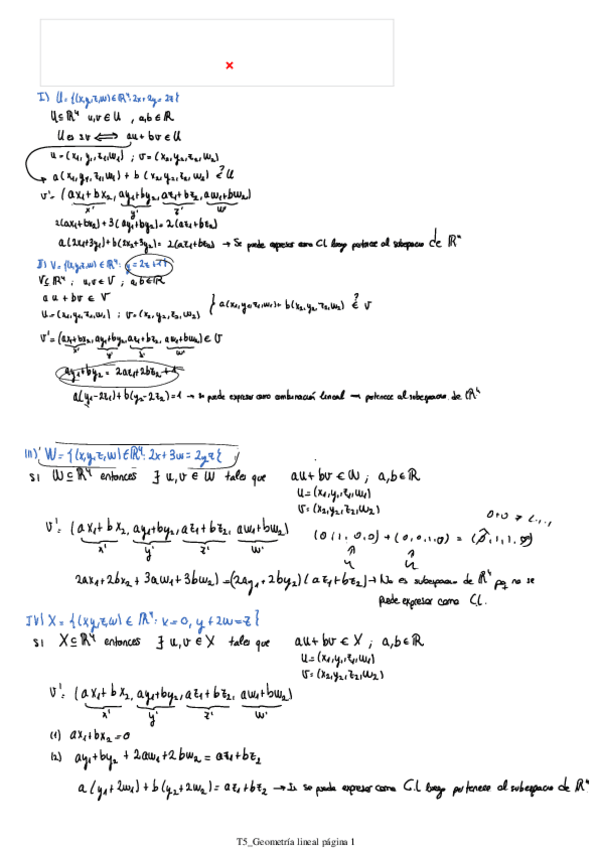 I) U = {(x,y,z,w) ∈ ℝ⁴: 2x+2y = 2z}
U ⊆ ℝ⁴ u,v ∈ U , a,b ∈ ℝ
U es sv ⟺ au + bv ∈ U
u = (x₁, y₁, z₁, w₁) ; v = (x₂, y₂, z₂, w₂)
a(x₁, y₁, z₁, w₁) + b(x₂, y₂, z₂, w₂) ∈? U
v' = (ax₁+bx₂, ay₁+by₂, az₁+bz₂, aw₁+bw₂)
x' y' z' w'
2(ax₁+bx₂) + 3(ay₁+by₂) = 2(az₁+bz₂)
a(2x₁+3y₁) + b(2x₂+3y₂) = 2(az₁+bz₂) → Se puede expresar como CL luego pertenece al subespacio de ℝ⁴
II) V = {(x,y,z,w) ∈ ℝ⁴: y = 2z+1}
V ⊆ ℝ⁴ ; u,v ∈ V ; a,b ∈ ℝ
au + bv ∈ V
u = (x₁, y₁, z₁, w₁) ; v = (x₂, y₂, z₂, w₂) } a(x₁, y₁, z₁, w₁) + b(x₂, y₂, z₂, w₂) ∈? V
v' = (ax₁+bx₂, ay₁+by₂, az₁+bz₂, aw₁+bw₂) ∈ V
x' y' z' w'
ay₁+by₂ = 2az₁+2bz₂+1
a(y₁-2z₁) + b(y₂-2z₂) = 1 → se puede expresar como combinación lineal → pertenece al subespacio de ℝ⁴
III) W = {(x,y,z,w) ∈ ℝ⁴: 2x+3w = 2yz}
Si W ⊆ ℝ⁴ entonces ∃ u,v ∈ W tales que au + bv ∈ W ; a,b ∈ ℝ
u = (x₁, y₁, z₁, w₁)
v = (x₂, y₂, z₂, w₂)
v' = (ax₁+bx₂, ay₁+by₂, az₁+bz₂, aw₁+bw₂) (0,1,0,0) + (0,0,1,0) = (0,1,1,0)
x' y' z' w'
2ax₁+2bx₂+3aw₁+3bw₂) = (2ay₁+2by₂)(az₁+bz₂) → No es subespacio de ℝ⁴ pq no se
puede expresar como CL.
IV) X = {(x,y,z,w) ∈ ℝ⁴: x=0, y+2w=z}
Si X ⊆ ℝ⁴ entonces ∃ u,v ∈ X tales que au + bv ∈ X ; a,b ∈ ℝ
u = (x₁, y₁, z₁, w₁)
v = (x₂, y₂, z₂, w₂)
v' = (ax₁+bx₂, ay₁+by₂, az₁+bz₂, aw₁+bw₂)
x' y' z' w'
(1) ax₁+bx₂ = 0
(2) ay₁+by₂ + 2aw₁+2bw₂ = az₁+bz₂
a(y₁+2w₁) + b(y₂+2w₂) = az₁+bz₂ → se puede expresar como C.L luego pertenece al subespacio de ℝ⁴
T5_Geometría lineal página 1